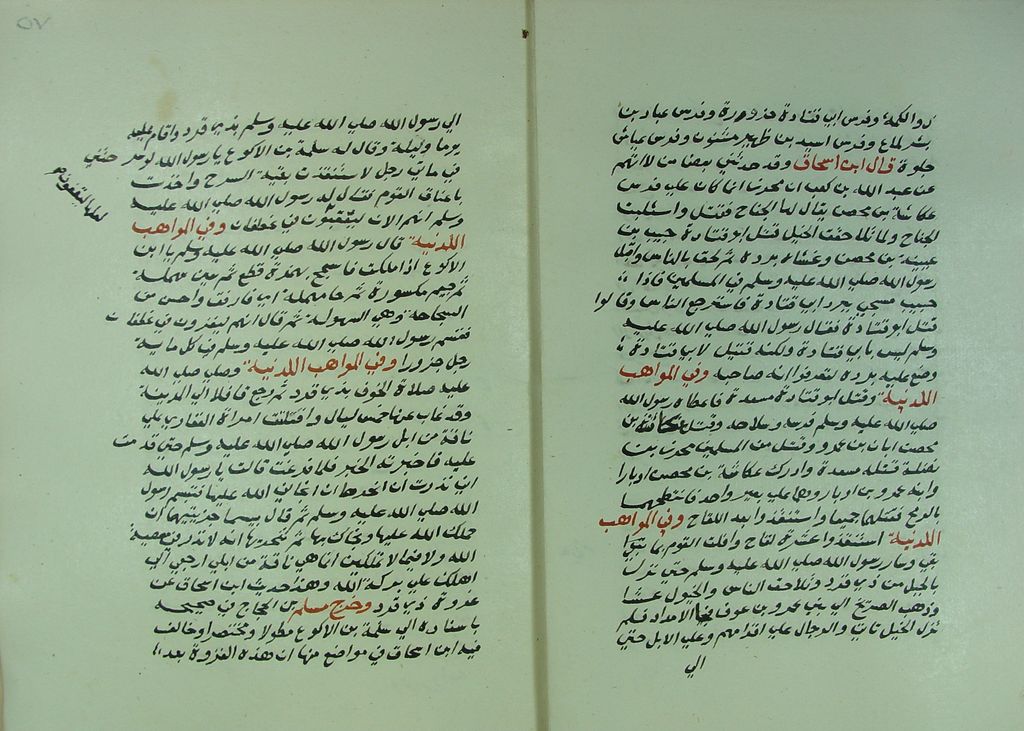 ذو اللمة وفرس ابي قتادة حزورة وفرس عباد بن
بشر لماع وفرس اسيد بن ظهير مسنون وفرس عياش
جلوة قال ابن اسحاق وقد حدثني بعض من لا اتهم
عن عبد الله بن كعب ان محرزا انما كان علي فرس
عكاشة بن محصن يقال لها الجناح فقتل واستلبت
الجناح ولما تلاحقت الخيل قتل ابو قتادة حبيب بن
عيينة بن حصن وغشاه برده ثم لحق بالناس واقبل
رسول الله صلي الله عليه وسلم في المسلمين فاذا
حبيب مسجي ببرد ابي قتادة فاسترجع الناس وقالوا
قتل ابو قتادة فقال رسول الله صلي الله عليه
وسلم ليس بابي قتادة ولكنه قتيل لابي قتادة
وضع عليه برده لتعرفوا انه صاحبه وفي المواهب
اللدنية وقتل ابو قتادة مسعدة فاعطاه رسول الله
صلي الله عليه وسلم فرسه وسلاحه وقتل عكاشة بن
محصن ابان بن عمرو وقتل من المسلمين محرز بن
نضلة قتله مسعدة وادرك عكاشة بن محصن اوبارا
وابنه عمرو بن اوبار وهما علي بعير واحد فانتظمهما
بالرمح فقتلهما جميعا واستنقذوا بعد اللقاح وفي المواهب
اللدنية استنقذوا عشرة لقاح وافلت القوم بما
بقي وسار رسول الله صلي الله عليه وسلم حتي نزل
بالجبل من ذي قرد وتلاحق الناس والخيول عشا
وذهب الصريخ الي بني عمرو بن عوف فجا الامداد فلم
تزل الخيل تاتي والرجال علي اقدامهم وعلي الابل حتي
الي
٥٧
الي رسول الله صلي الله عليه وسلم بذي قرد واقام عليه
يوما وليلة وقال له سلمة بن الاكوع يا رسول الله لو سرحتني
في ماتي رجل لاستنقذت بقية السرح واخذت
باعناق القوم فقال له رسول الله صلي الله عليه
وسلم انهم الان ليغبقون في غطفان وفي المواهب
اللدنية قال رسول الله صلي الله عليه وسلم يا ابن
الاكوع اذا ملكت فاسجح بهمزة قطع ثم سين مهملة
ثم جيم مكسورة ثم حا مهملة اي فارفق واحسن من
السجاحة وهي السهولة ثم قال انهم ليقرون في غطفان
فقسم رسول الله صلي الله عليه وسلم في كل ماية
رجل جزورا وفي المواهب اللدنية وصلي صلي الله
عليه صلاة الخوف بذي قرد ثم رجع قافلا الي المدينة
وقد غاب عنها خمس ليال وافتلتت امراة الغفاري علي
ناقة من ابل رسول الله صلي الله عليه وسلم حتي قدمت
عليه فاخبرته الخبر فلما فرغت قالت يا رسول الله
اني نذرت ان انحرها ان انجاني الله عليها فتبسم رسول
الله صلي الله عليه وسلم ثم قال بيسما جزيتيها ان
حملك الله عليها ونجاك بها ثم تنحرينها انه لا نذر في معصية
الله ولا فيما لا تملكين انما هي ناقة من ابلي ارجعي الي
اهلك علي بركة الله وهذا حديث ابن اسحاق عن
غزوة ذي قرد وخرج مسلم بن الحجاج في صحيحه
باسناده الي سلمة بن الاكوع مطولا ومختصرا وخالف
فيه ابن اسحاق في مواضع منها ان هذه الغزوة بعد